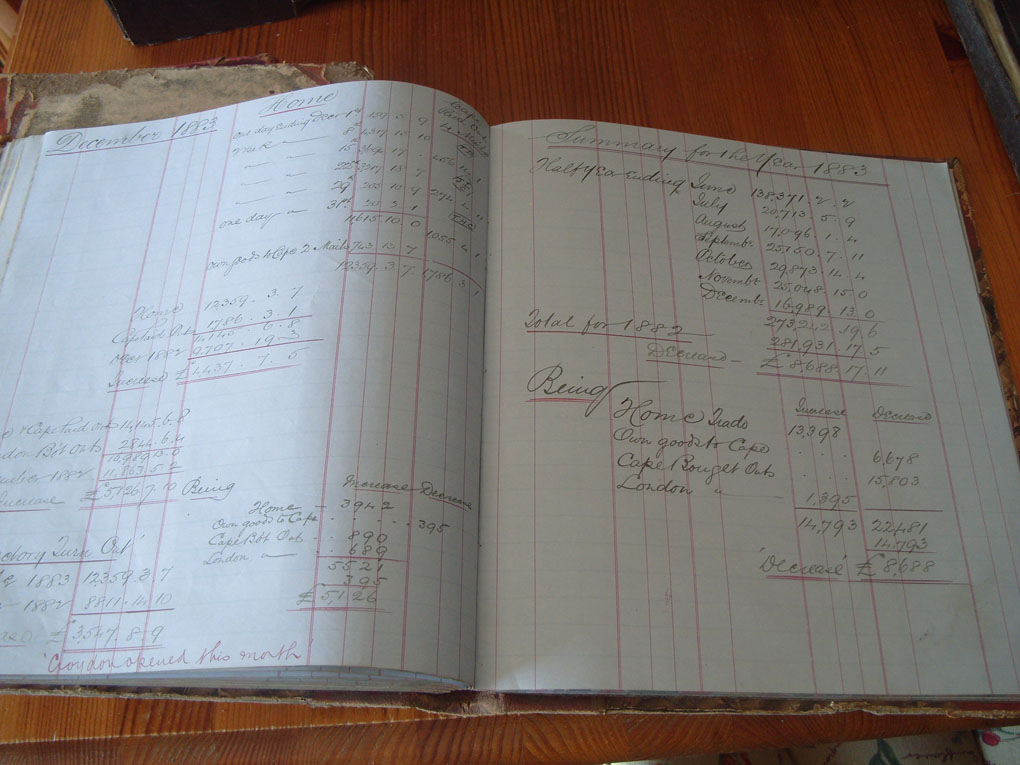 December 1883
Home
one day ending Decr 1st
8th
15th
22nd
29th
one day " 31st 20 3 1
11615.10.0 1055
Own goods to Cape 2 Mails 743 13 7
12359.3.7 1786.3.1
Home 12,359.3.7
1786.3.1
14,145.6.8
Decr 1882 9,707.19.3
Increase £4,437.7.5
Cape Paid Outs 14,145.6.8
London Bot Outs 2844.6.4
16,989.13.0
1882 11,863.5.2
Increase £5,126.7.10 Being
Increase Decrease
Home — 3942
Own goods to Cape . . . . . 395
Cape Bot Outs . . 890
London " . . 689
5521
395
£5,126
Factory Turn Out'
1883 12359.3.7
1882 8811.14.10
£3,547.8.9
'Croydon opened this month'
Summary for the Year 1883
Half year ending June 138,371.2.2
July 20,713.5.9
August 17,096.1.4
September 25,150.7.11
October 29,873.14.4
Novembr 25,048.15.0
Decembr 16,989.13.0
273,242.19.6
Total for 1882 281,931.17.5
Decrease — £8,688.17.11
Being
Increase Decrease
Home Trade 13,398
Own goods to Cape . . . 6,678
Cape Bought Outs . . . 15,803
London " 1,395
14,793 22,481
14,793
'Decrease' £8,688